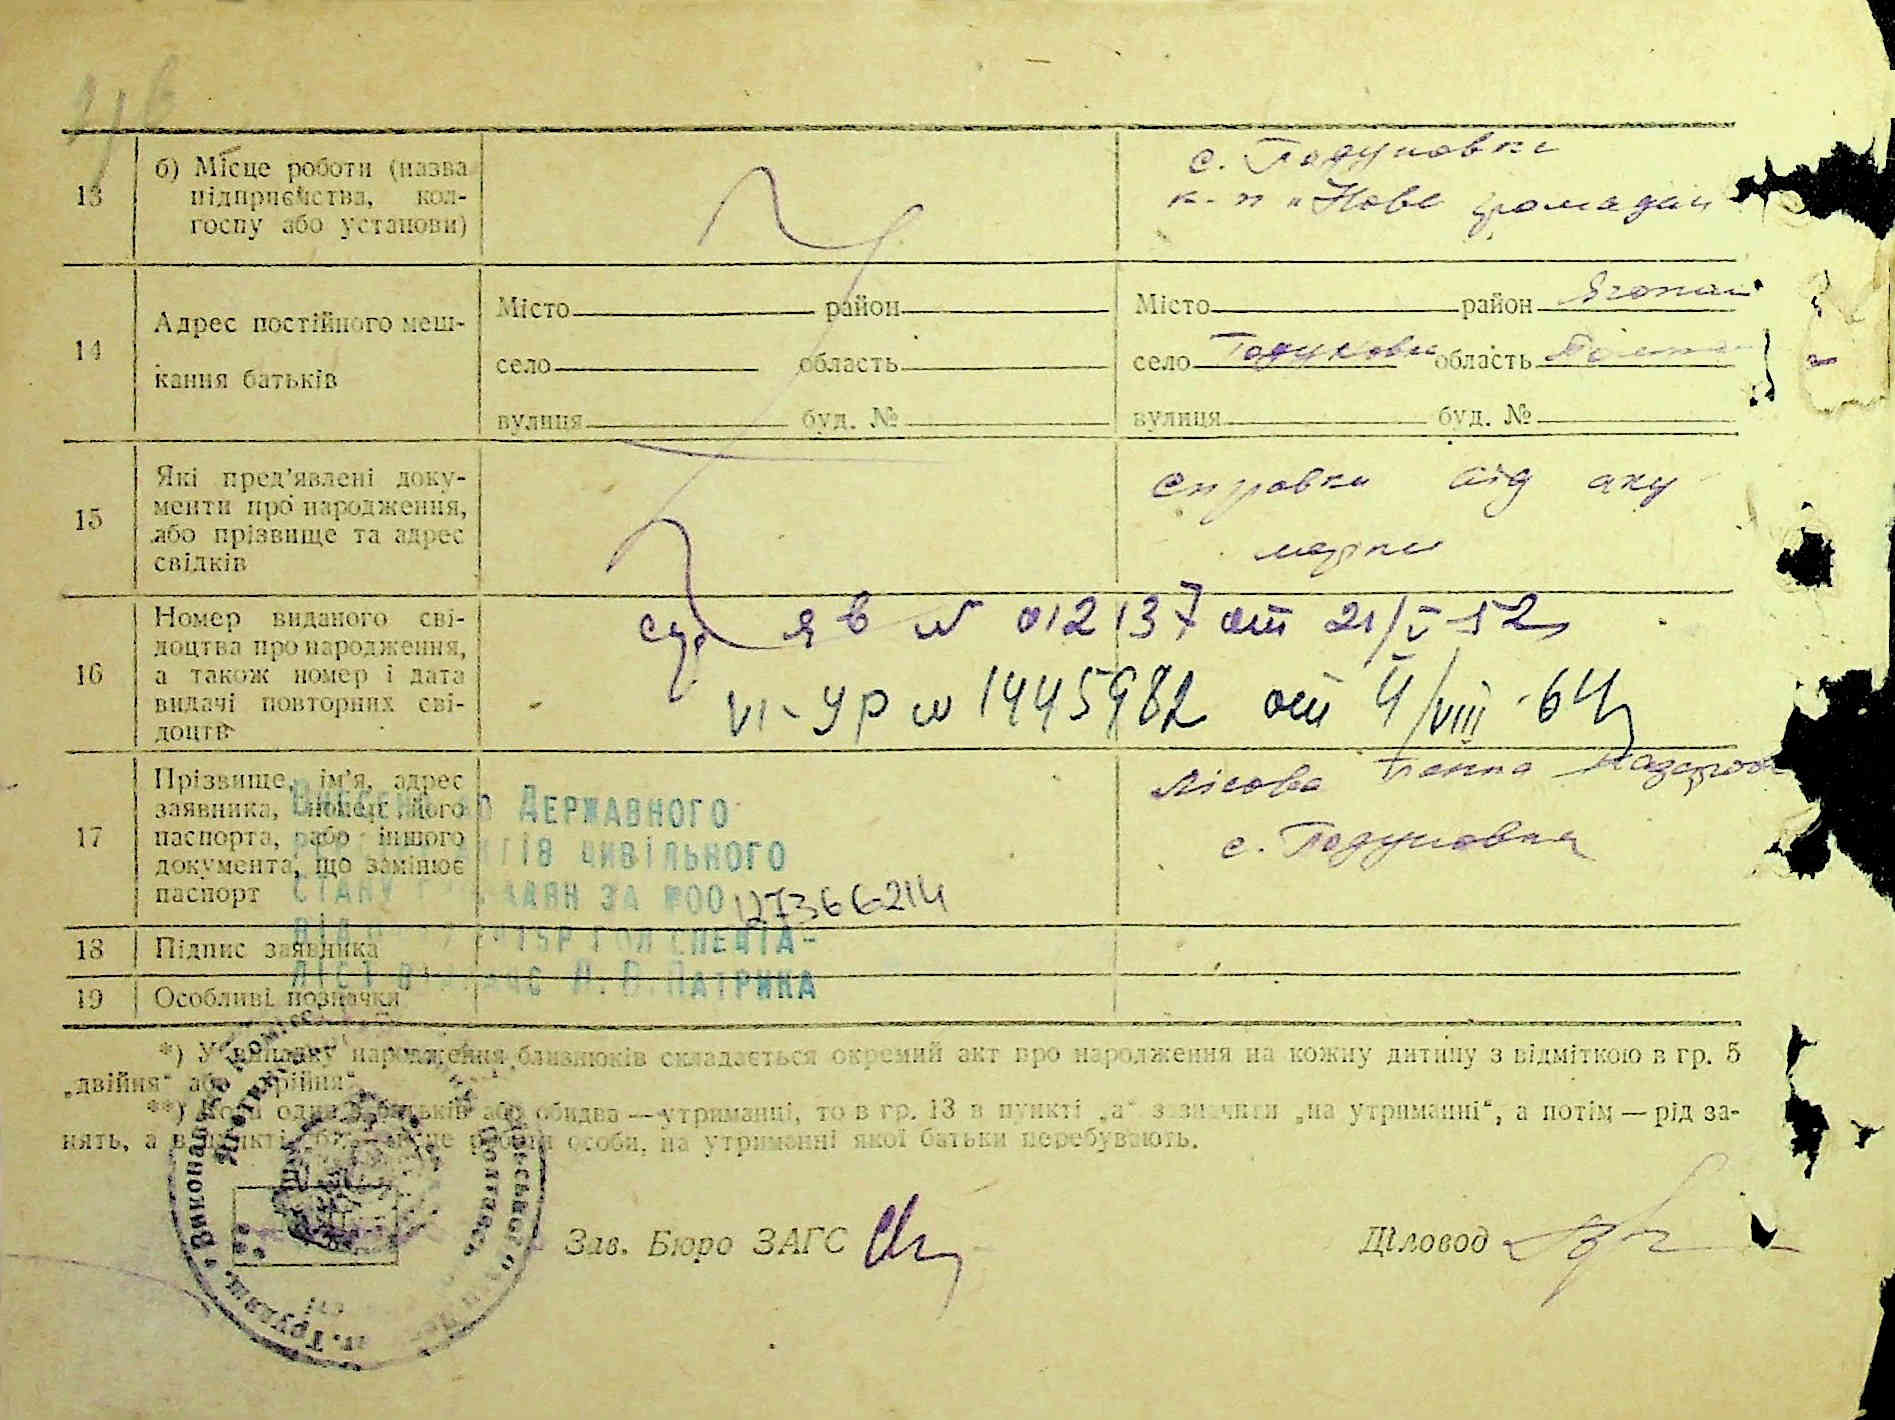 13
б) Місце роботи (назва
підприємства, кол-
госпу або установи)
с. Годуновка
к-п „Нове громадян
14
Адрес постійного меш-
кання батьків
Місто район
село область
вулиця буд. №
Місто район Яготин
село Годуновка область Полтав
вулиця буд. №
15
Які пред'явлені доку-
менти про народження,
або прізвище та адрес
свідків
справка від аку
шерки
16
Номер виданого сві-
доцтва про народження,
а також номер і дата
видачі повторних сві-
доцтв
ЯВ № 012137 от 21/V-52
VI-УР № 1445982 от 4/VIII-64
17
Прізвище, ім'я, адрес
заявника, номер його
паспорта, або іншого
документа, що замінює
паспорт
Лісова Ганна
с. Годуновка
Внесено до Державного
цивільного
стану громадян за №00127366214
18
Підпис заявника
спеціа-
ліст Патрика
19
Особливі позначки
*) У випадку народження близнюків складається окремий акт про народження на кожну дитину з відміткою в гр. 5
„двійня“ або „трійня“.
**) Коли один з батьків або обидва — утриманці, то в гр. 13 в пункті „а“ зазначити „на утриманні“, а потім — рід за-
нять, а в пункті „б“ — місце роботи особи, на утриманні якої батьки перебувають.
Зав. Бюро ЗАГС
Діловод